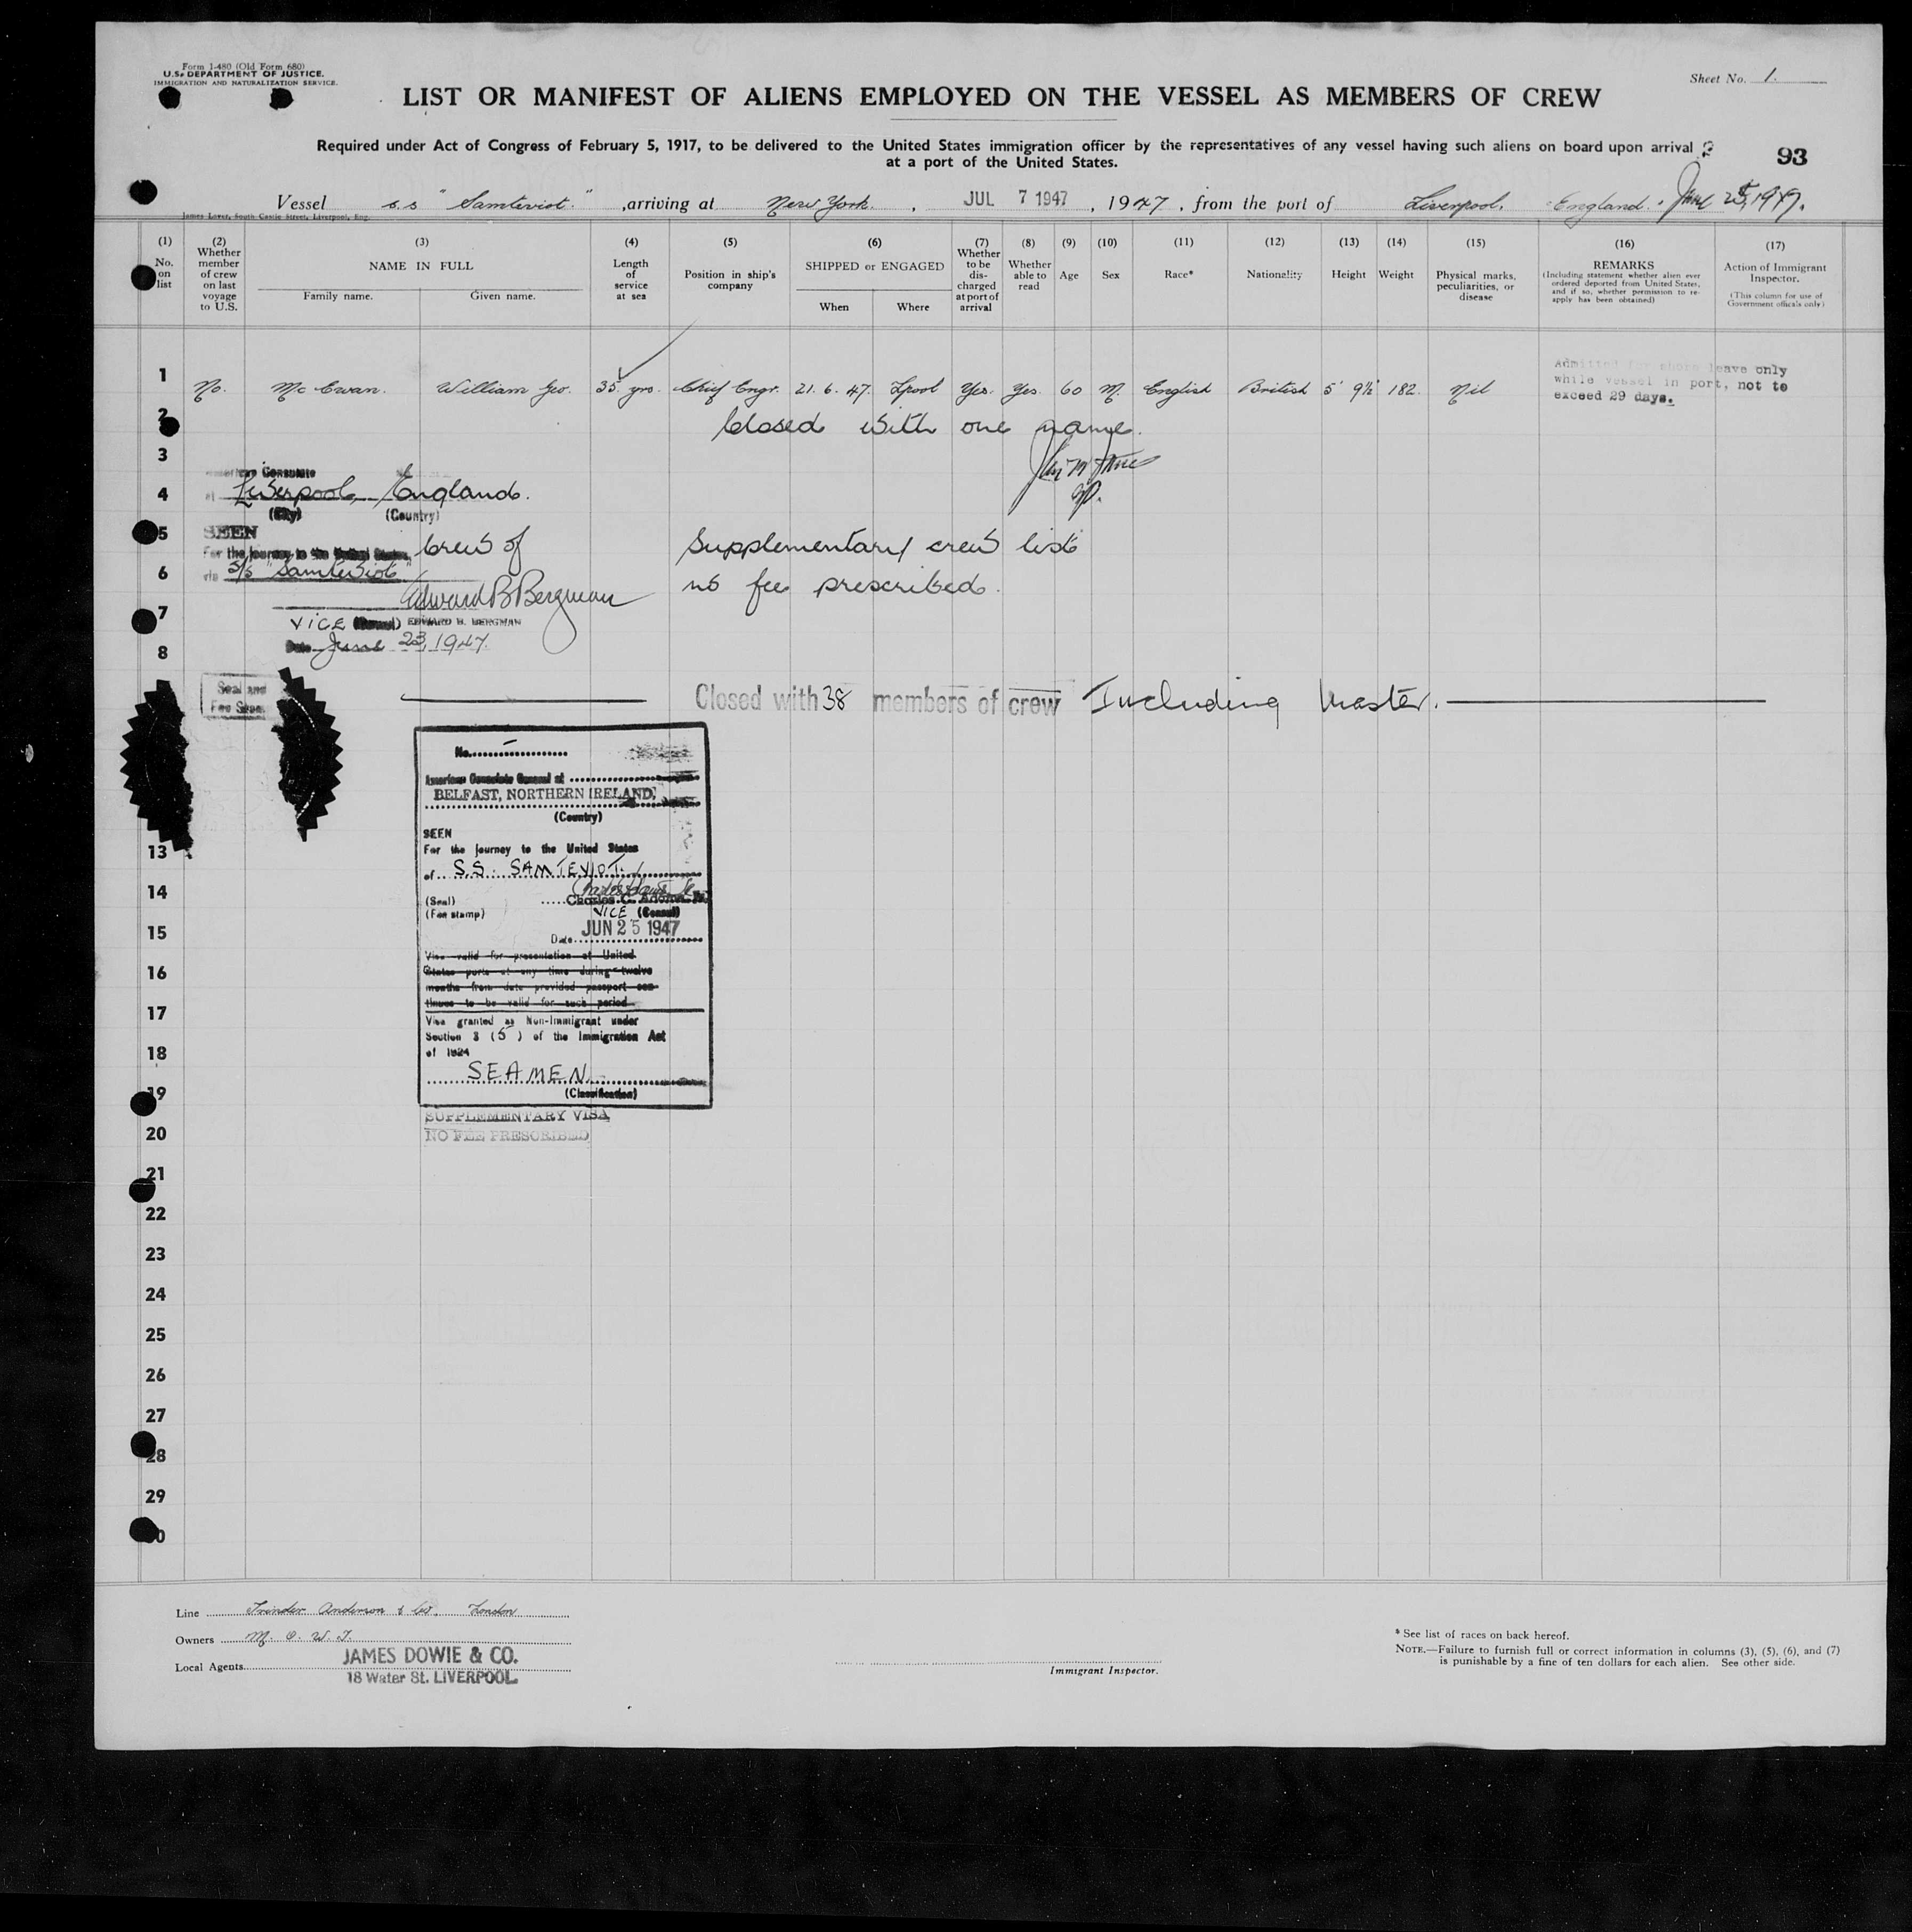 Form I-480 (Old Form 680)
U.S. DEPARTMENT OF JUSTICE.
IMMIGRATION AND NATURALIZATION SERVICE.
Sheet No. 1.
LIST OR MANIFEST OF ALIENS EMPLOYED ON THE VESSEL AS MEMBERS OF CREW
Required under Act of Congress of February 5, 1917, to be delivered to the United States immigration officer by the representatives of any vessel having such aliens on board upon arrival
at a port of the United States.
93
Vessel s.s "Samteviot." , arriving at New York. , JUL 7 1947 , 1947 , from the port of Liverpool, England. June 25, 1947.
James Lover, South Castle Street, Liverpool, Eng.
(1) (2) (3) (4) (5) (6) (7) (8) (9) (10) (11) (12) (13) (14) (15) (16) (17)
No. on list
Whether member of crew on last voyage to U.S.
NAME IN FULL
Family name. Given name.
Length of service at sea
Position in ship's company
SHIPPED or ENGAGED
When Where
Whether to be discharged at port of arrival
Whether able to read
Age
Sex
Race*
Nationality
Height
Weight
Physical marks, peculiarities, or disease
REMARKS
(Including statement whether alien ever ordered deported from United States, and if so, whether permission to re-apply has been obtained)
Action of Immigrant Inspector.
(This column for use of Government officials only)
1 No. Mc Ewan. William Geo. 35 yrs. Chief Engr. 21. 6. 47. Lpool Yes. Yes. 60 M. English British 5' 9½ 182. Nil
Admitted for shore leave only
while vessel in port, not to
exceed 29 days.
2 Closed with one name.
3
American Consulate
4 Liverpool, England.
(City) (Country)
5 SEEN
For the journey to the United States, Crew of
Supplementary crew list
6 via S/S "Samteviot"
no fee prescribed.
Edward B Bergman
7
VICE (Consul) EDWARD B. BERGMAN
Date June 23, 1947.
8
Seal and
Fee Stamp
Closed with 38 members of crew Including Master.
No.
American Consulate General at
BELFAST, NORTHERN IRELAND,
(Country)
SEEN
For the journey to the United States
of S.S. SAMTEVIOT.
(Seal) Charles C. Adams, Jr.
(Fee stamp) VICE (Consul)
Date JUN 25 1947
Visa valid for presentation at United
States ports at any time during twelve
months from date provided passport con-
tinues to be valid for such period
Visa granted as Non-Immigrant under
Section 3 (5) of the Immigration Act
of 1924
SEAMEN
(Classification)
SUPPLEMENTARY VISA
NO FEE PRESCRIBED
13
14
15
16
17
18
19
20
21
22
23
24
25
26
27
28
29
Line Trinder Anderson & Co. London
Owners M. O. W. T.
Local Agents JAMES DOWIE & CO.
18 Water St. LIVERPOOL
Immigrant Inspector.
* See list of races on back hereof.
NOTE.—Failure to furnish full or correct information in columns (3), (5), (6), and (7)
is punishable by a fine of ten dollars for each alien. See other side.